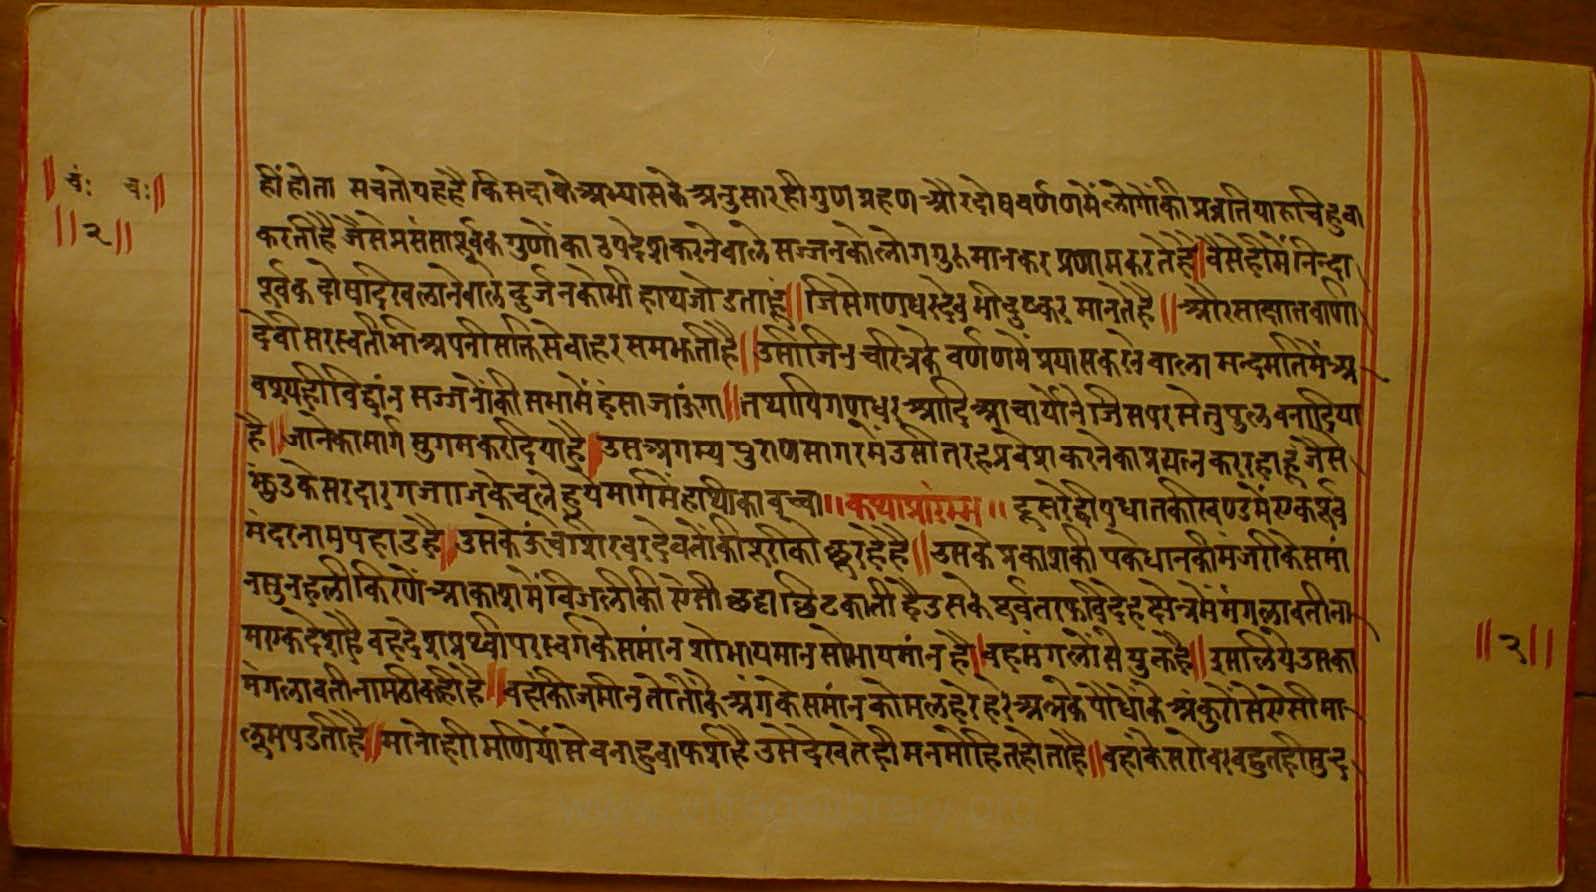 ॥ चं: च: ॥
॥ २ ॥
हीं होता सच तो यह है कि सदा के अभ्यास के अनुसार ही गुण ग्रहण और दोष वर्णण में लोगों की प्रव्रति या रुचि हुवा
करती है जैसे प्रसंसा पूर्वक गुणों का उपदेश करने वाले सज्जन को लोग गुरु मानकर प्रणाम करते है ॥ वैसे ही में निन्दा
पूर्वक दोषादि खलाने वाले दुर्जन को भी हाथ जोडता हूं ॥ जिसे गणधर देव भी दुष्कर मानते है ॥ और साक्षात वाणी
देवी सरस्वती भी अपनी सक्ति से वाहर समझती है ॥ उसी जिन चरित्र के वर्णण में प्रयास करने वाला मन्दमति में अ
वश्य ही विद्वांन सज्जनों की सभा में हंसा जाउंगा ॥ तथापि गणधर आदि आचार्यो ने जिस पर सेतु पुल वना दिया
है ॥ जाने का मार्ग सुगम कर दिया है ॥ उस अगम्य पुराण सागर में उसी तरह प्रवेश करने का प्रयत्न कर रहा हूं जैसे
झुंड के सरदार गजगाज के चले हुये मार्ग में हाथी का वच्चा ॥ कथा प्रारंम्भ ॥ दूसरे द्वीप धातकी खण्ड में एक पूर्व
मंदर नाम पहाड है ॥ उसके ऊंचे शिखर देवतों की श्री को छू रहे है ॥ उसके प्रकाश की पके धान की मंजरी के समां
न सुनहली किरणें आकाश में विजली की ऐसी छटा छिटकाती है उसके पूर्व तरफ विदेह क्षेत्र में मंगलावती ना
म एक देश है वह देश प्रथ्वी पर स्वर्ग के समांन शोभायमान सोभायमांन है ॥ वह मंगलों से युक्त है ॥ इसलिये उसका
मंगलावती नाम ठीक ही है ॥ वहां की जमीन तोतों के अंग के समांन कोमल हरे हरे अन्न के पौधों के अंकुरों से एसी मा
लूम पडती है ॥ मानो हरी मणियों से वना हुवा फर्श है उसे देखते ही मन मोहित होता है ॥ वहां के सरोवर वहुत ही सुन्द
॥ २ ॥